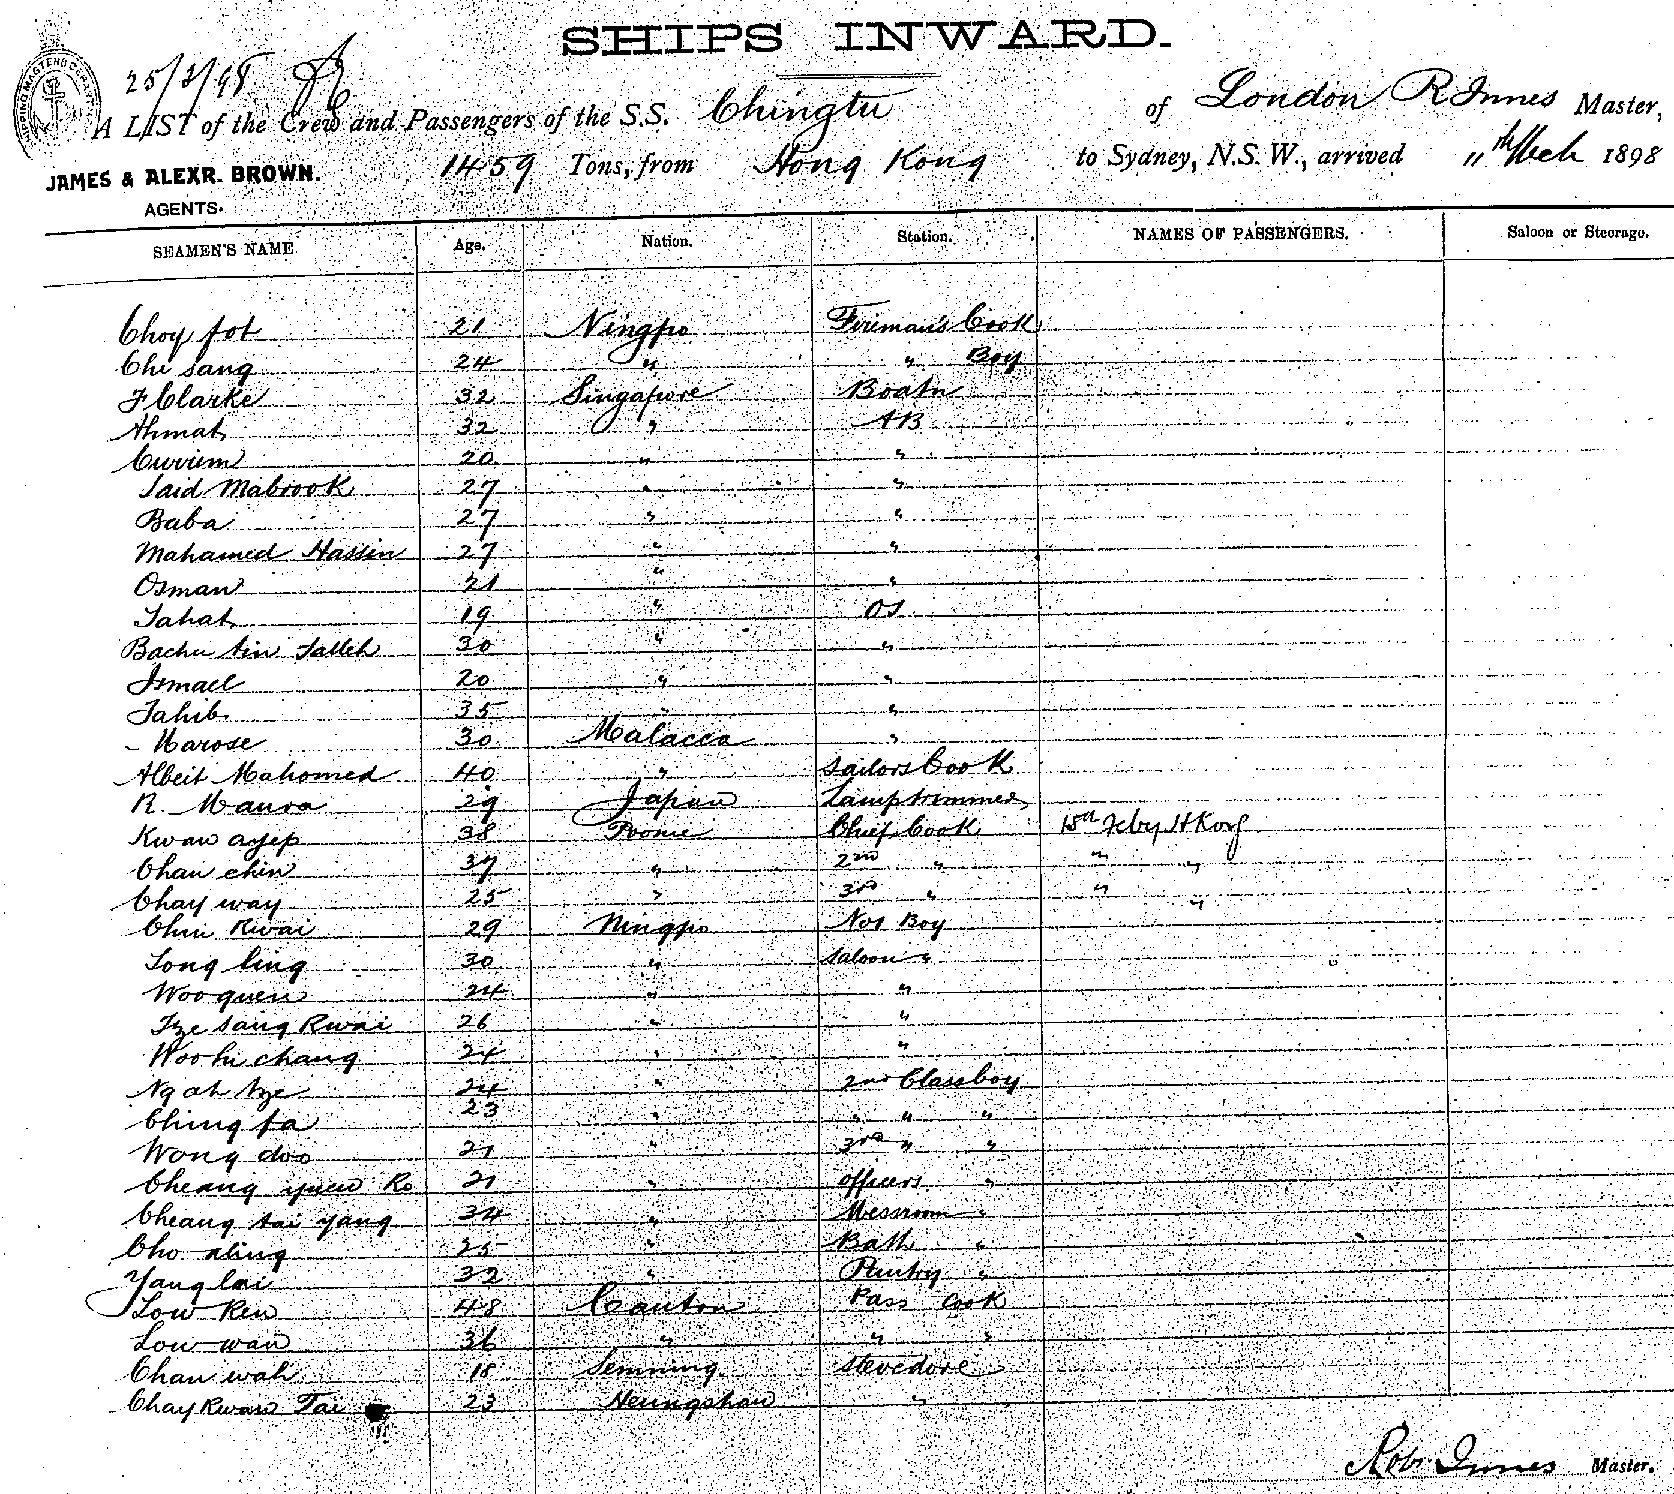 SHIPS INWARD.
25/3/98
A LIST of the Crew and Passengers of the S.S. Chingtu of London R Innes Master,
JAMES & ALEXR. BROWN.
AGENTS.
1459 Tons, from Hong Kong to Sydney, N.S.W., arrived 11th Mch 1898
SEAMEN'S NAME Age. Nation. Station. NAMES OF PASSENGERS. Saloon or Steerage.
Choy fot 21 Ningpo Fireman's Cook
Chi sang 24 " " Boy
F Clarke 32 Singapore Boatn
Ahmat 32 " AB
Curriem 20 " "
Said Mabrook 27 " "
Baba 27 " "
Mahamed Hassin 27 " "
Osman 21 " "
Tahat 19 " OS
Bachu bin Salleh 30 " "
Ismael 20 " "
Sahib 35 " "
Marose 30 Malacca "
Albeit Mahomed 40 " Sailors Cook
R. Maura 29 Japan Lamptrimmer
Kwan ayep 38 Poonie Chief Cook Feby HKong
Chan chin 37 " 2nd " " "
Chay way 25 " 3rd " " "
Chin Kwai 29 Ningpo No1 Boy
Song ling 30 " Saloon "
Woo quen 24 " "
Tze sang Kwai 26 " "
Woo hi chang 24 " "
Ng ah tze 24 " 2nd Class boy
Ching fa 23 " " " "
Wong doo 21 " 3rd " "
Cheang yuen Ko 21 " officers "
Cheang tai yang 34 " Messroom "
Cho aling 25 " Bath "
Yang lai 32 " Pantry "
Low Ken 48 Canton Pass Cook
Low wan 36 " " "
Chan wah 18 Sennning Stevedore
Chay Kwan Tai 23 Heungshan "
Robt Innes Master.